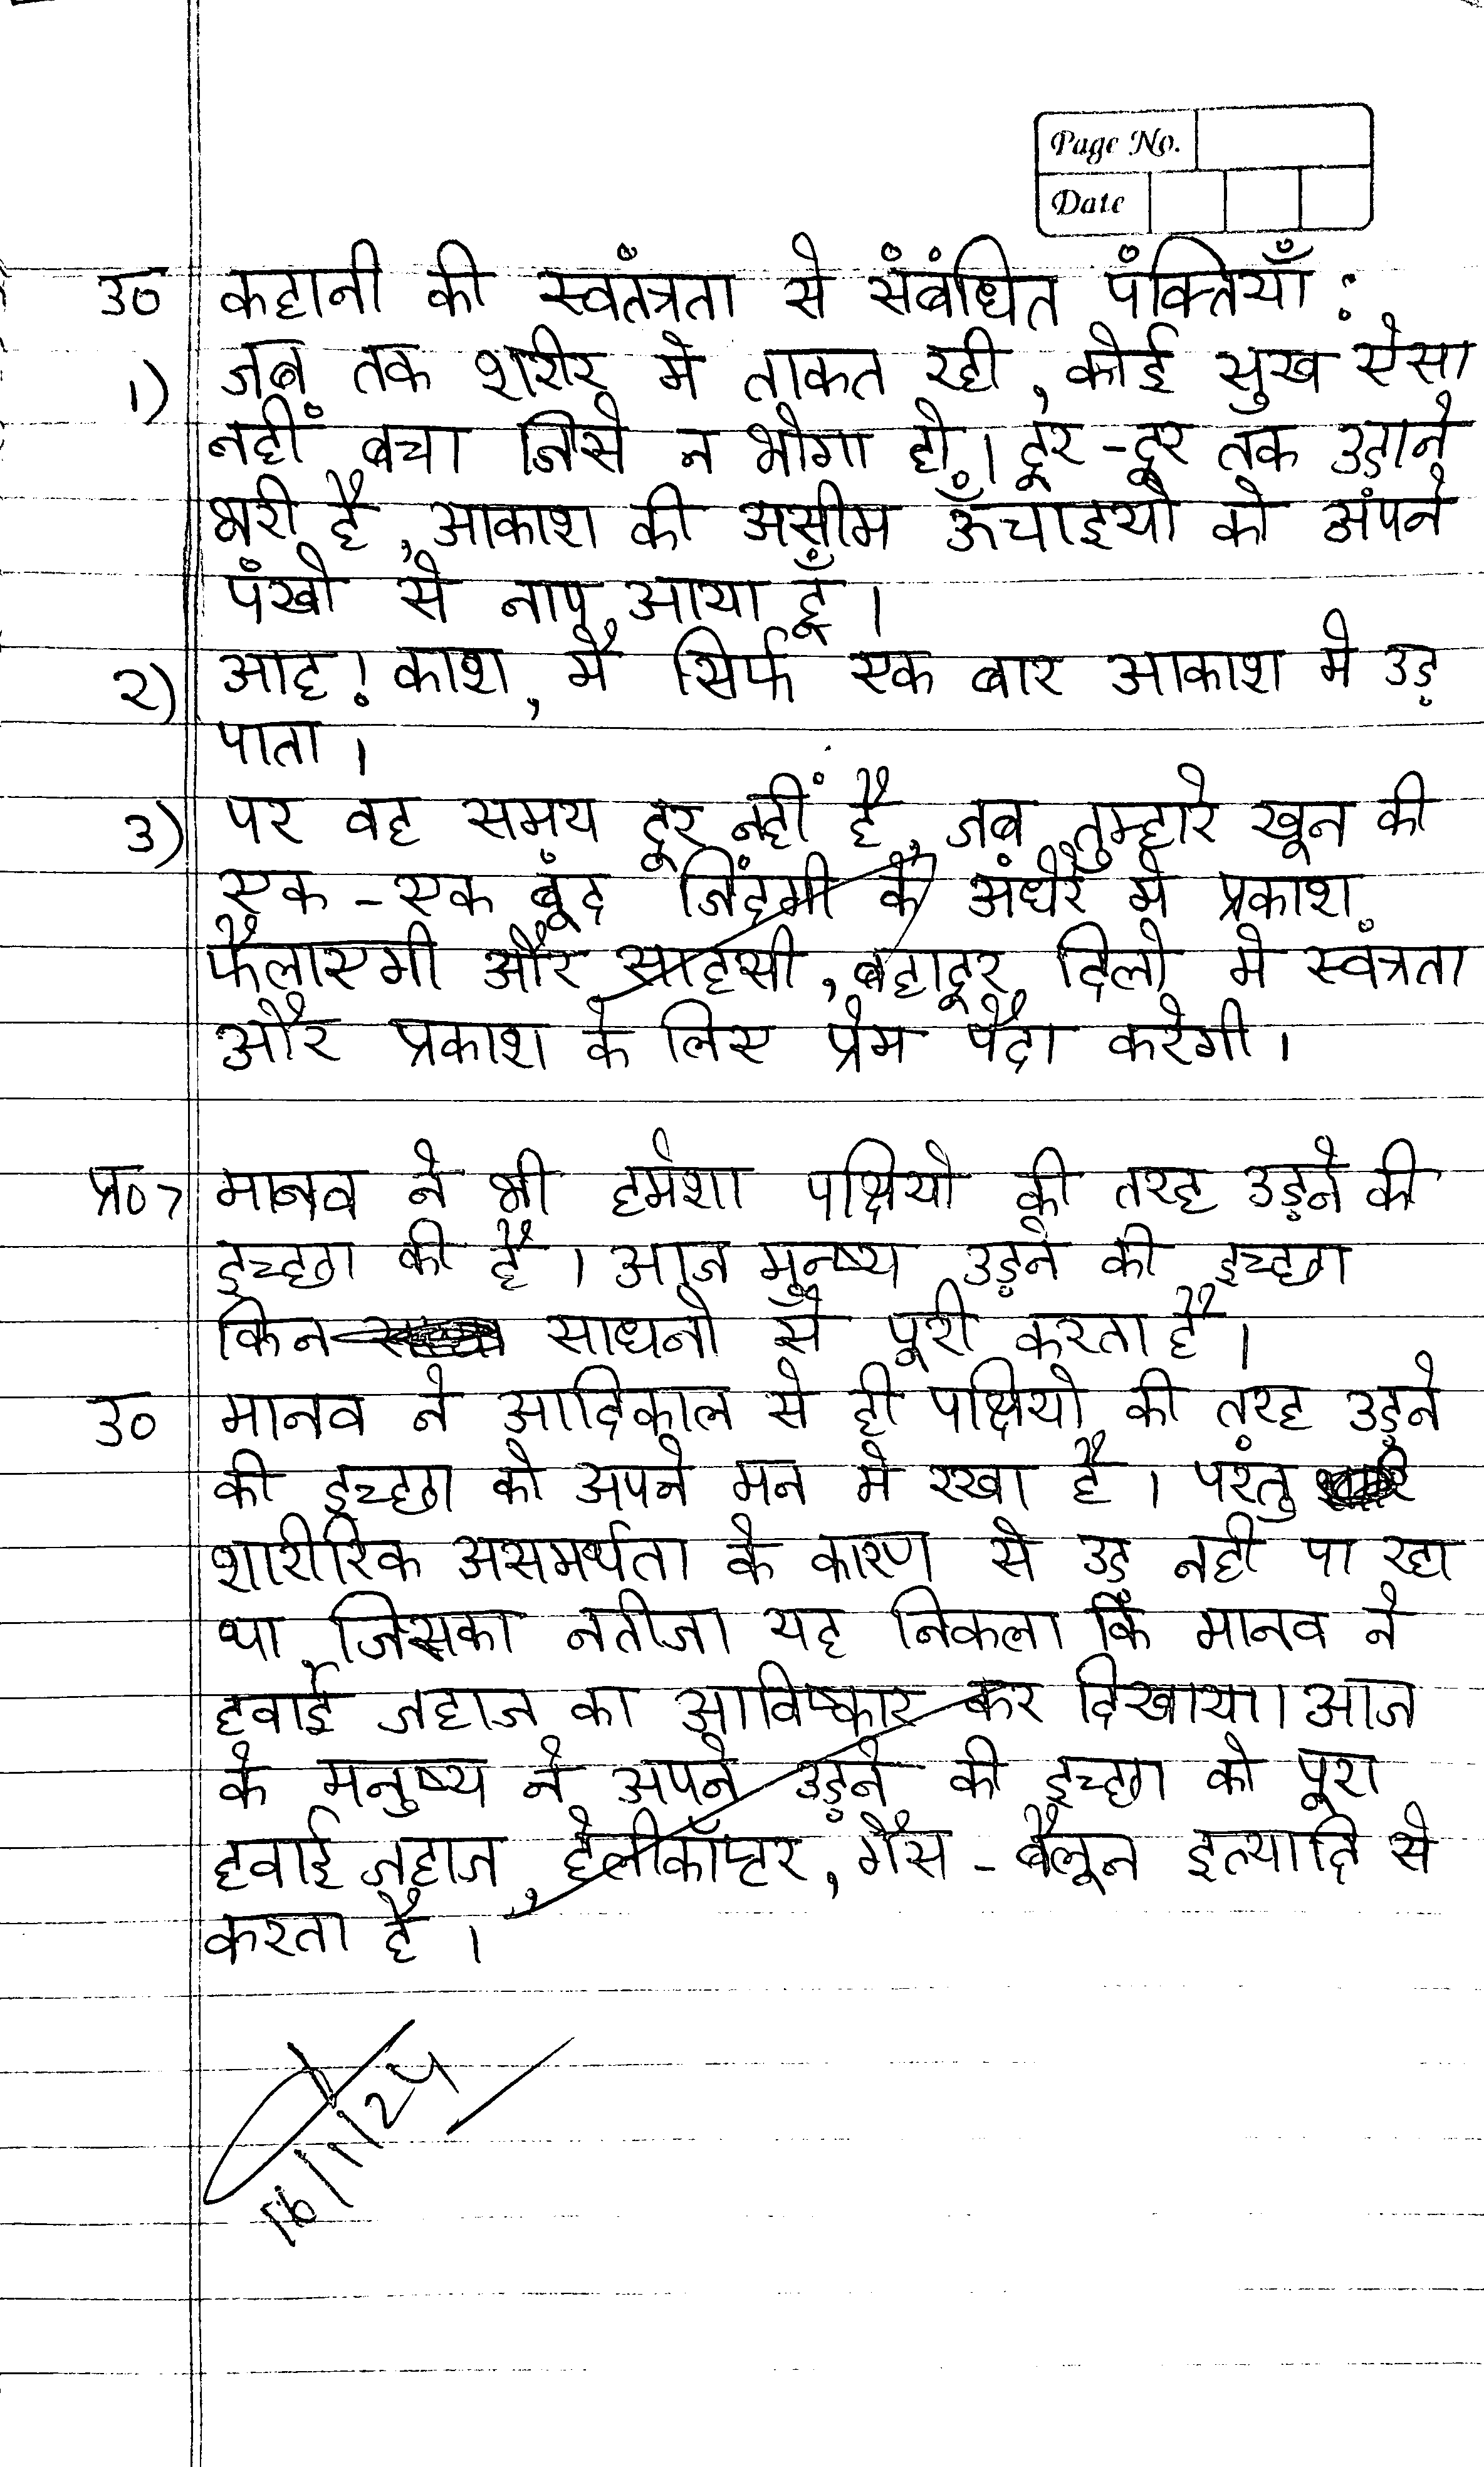 Page No.
Date
उ० कहानी की स्वतंत्रता से संबंधित पंक्तियाँ :
1) जब तक शरीर मे ताकत रही, कोई सुख ऐसा
नहीं बचा जिसे न भोगा हो। दूर-दूर तक उड़ाने
भरी है, आकाश की असीम ऊँचाइयो को अपने
पंखो से नाप आया हूँ।
2) आह! काश, मै सिर्फ एक बार आकाश मे उड़
पाता।
3) पर वह समय दूर नहीं है, जब तुम्हारे खून की
एक-एक बूंद जिंदगी के अंधेरे मे प्रकाश
फैलाएगी और साहसी, बहादूर दिलो मे स्वंत्रता
और प्रकाश के लिए प्रेम पैदा करेगी।
प्र०7 मानव ने भी हमेशा पक्षियो की तरह उड़ने की
इच्छा की है। आज मुन्ष्य उड़ने की इच्छा
किन साधनो से पूरी करता है।
उ० मानव ने आदिकाल से ही पक्षियो की तरह उड़ने
की इच्छा को अपने मन मे रखा है। परंतु
शारीरिक असमर्थता के कारण से उड़ नही पा रहा
था जिसका नतीजा यह निकला कि मानव ने
हवाई जहाज का आविष्कार कर दिखाया। आज
के मनुष्य ने अपने उड़ने की इच्छा को पूरा
हवाई जहाज, हेलीकॉप्टर, गैस-बैलून इत्यादि से
करता है।
16/11/24